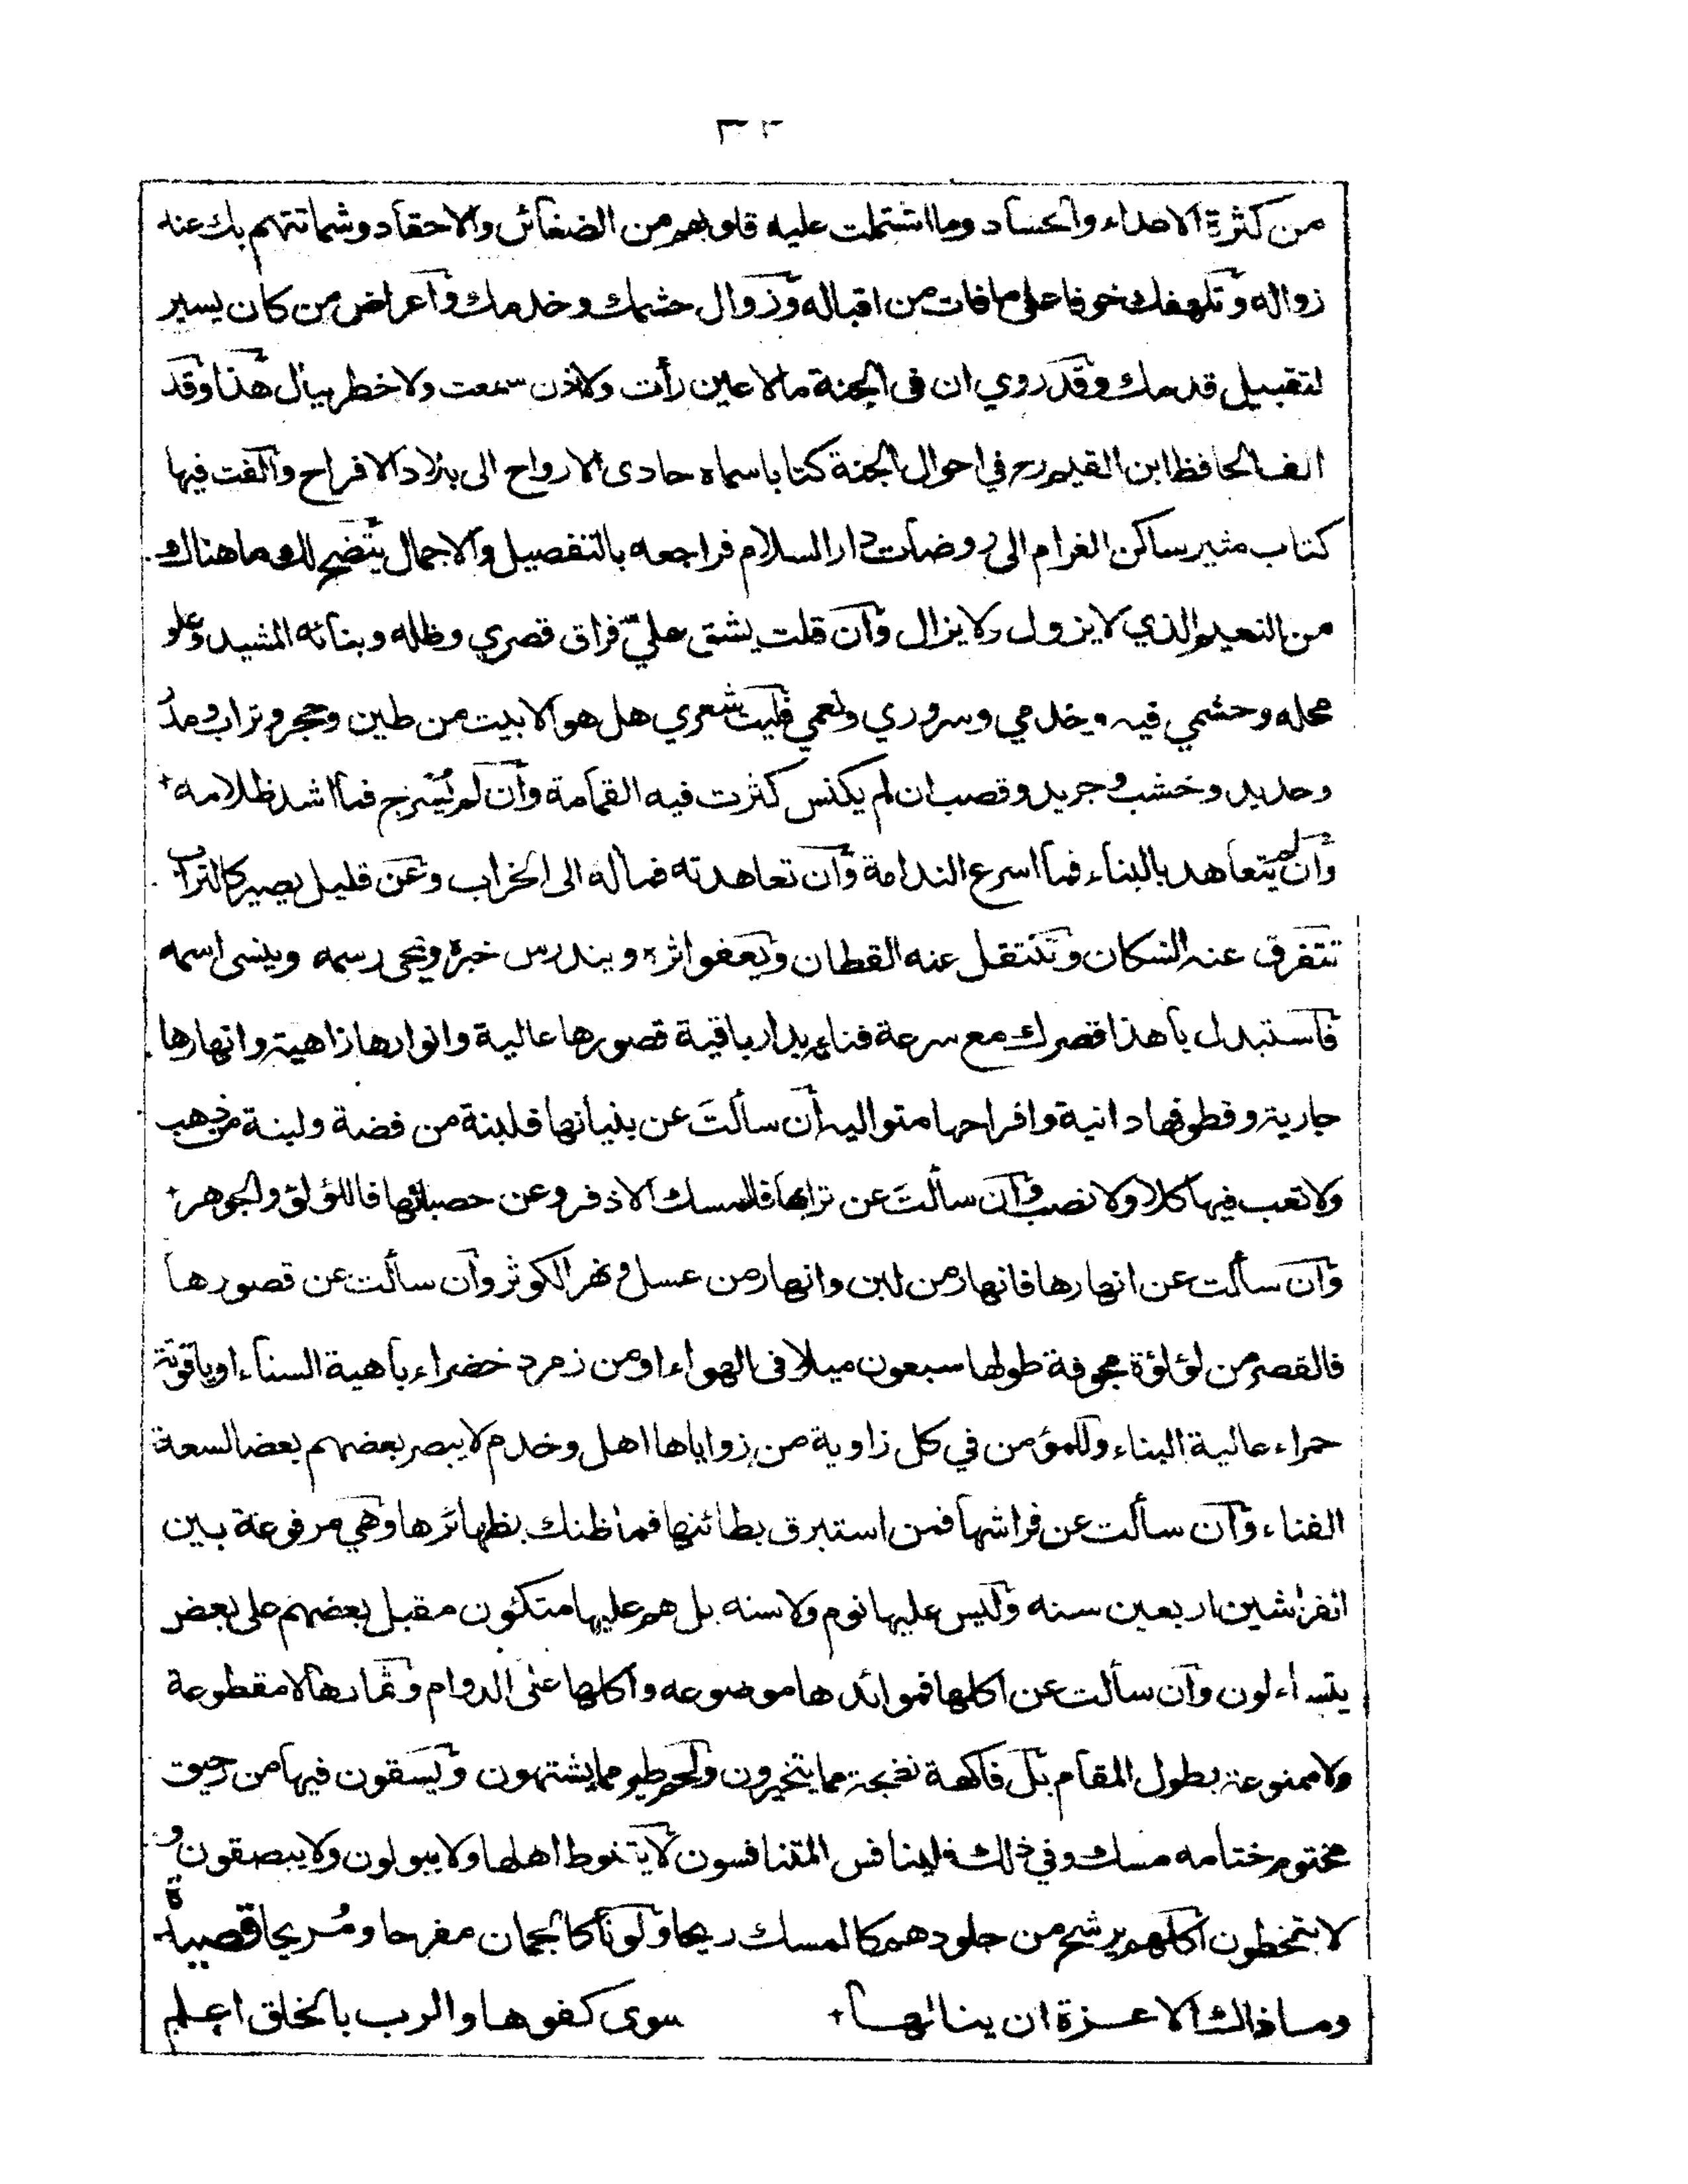 ٣٢
من كثرة الاعداء والحساد وما اشتملت عليه قلوبهم من الضغائن والاحقاد وشماتتهم بك عنه
زواله وتلهفك خوفا على ما فات من اقباله وزوال حشمك وخدمك واعراض من كان يسير
لتقبيل قدمك وقد روي ان فى الجنة ما لا عين رأت ولا اذن سمعت ولا خطر ببال هذا وقد
الف الحافظ ابن القيم رح في احوال الجنة كتابا سماه حادى الارواح الى بلاد الافراح والفت فيها
كتاب مثير ساكن الغرام الى روضات دار السلام فراجعه بالتفصيل والاجمال يتضح لك ما هنالك
من النعيم الذي لا يزول ولا يزال وان قلت يشق عليّ فراق قصري وظله وبنائه المشيد وعلو
محله وحشمي فيه وخدمي وسروري ونعمي فليت شعري هل هو الا بيت من طين وحجر وتراب ومدُ
وحديد وخشب وجريد وقصب ان لم يكنس كثرت فيه القمامة وان لم يُسرج فما اشد ظلامه
وان لم يتعاهد بالبناء فما اسرع الندامة وان تعاهدته فماله الى الخراب وعن قليل يصير كالتراب
تتفرق عنه السكان وتنتقل عنه القطان ويعفو اثره ويندرس خبره ويمحى رسمه وينسى اسمه
فاستبدل يا هذا قصرك مع سرعة فنائه بدار باقية قصورها عالية وانوارها زاهية وانهارها
جارية وقطوفها دانية وافراحها متواليه أن سألتَ عن بنيانها فلبنة من فضة ولبنة من ذهب
ولا تعب فيها كلا ولا نصب وان سألتَ عن ترابها فالمسك الاذفر وعن حصبائها فاللؤلؤ والجوهر
وان سألت عن انهارها فانهار من لبن وانهار من عسل ونهر الكوثر وان سألت عن قصورها
فالقصر من لؤلؤة مجوفة طولها سبعون ميلا فى الهواء او من زمرد خضراء باهية السناء او ياقوتة
حمراء عالية البناء وللمؤمن في كل زاوية من زواياها اهل وخدم لا يبصر بعضهم بعضا لسعة
الفناء وان سألت عن فراشها فمن استبرق بطائنها فما ظنك بظهائرها وهي مرفوعة بين
الفراشين اربعين سنه وليس عليها نوم ولا سنه بل هم عليها متكئون مقبل بعضهم على بعض
يتساءلون وان سألت عن اكلها فموائدها موضوعه واكلها على الدوام وثمارها لا مقطوعة
ولا ممنوعة بطول المقام بل فاكهة نضيجة مما يتخيرون ولحم طير مما يشتهون ويسقون فيها من رحيق
مختوم ختامه مسك وفي ذلك فليتنافس المتنافسون لا يتغوط اهلها ولا يبولون ولا يبصقون و
لا يتمخطون اكلهم يرشح من جلودهم كالمسك ريحا ولونا كالجمان مفرحا ومُريحا قصيدة
وما ذاك الا عزة ان ينالها سوى كفوها والرب بالخلق اعلم